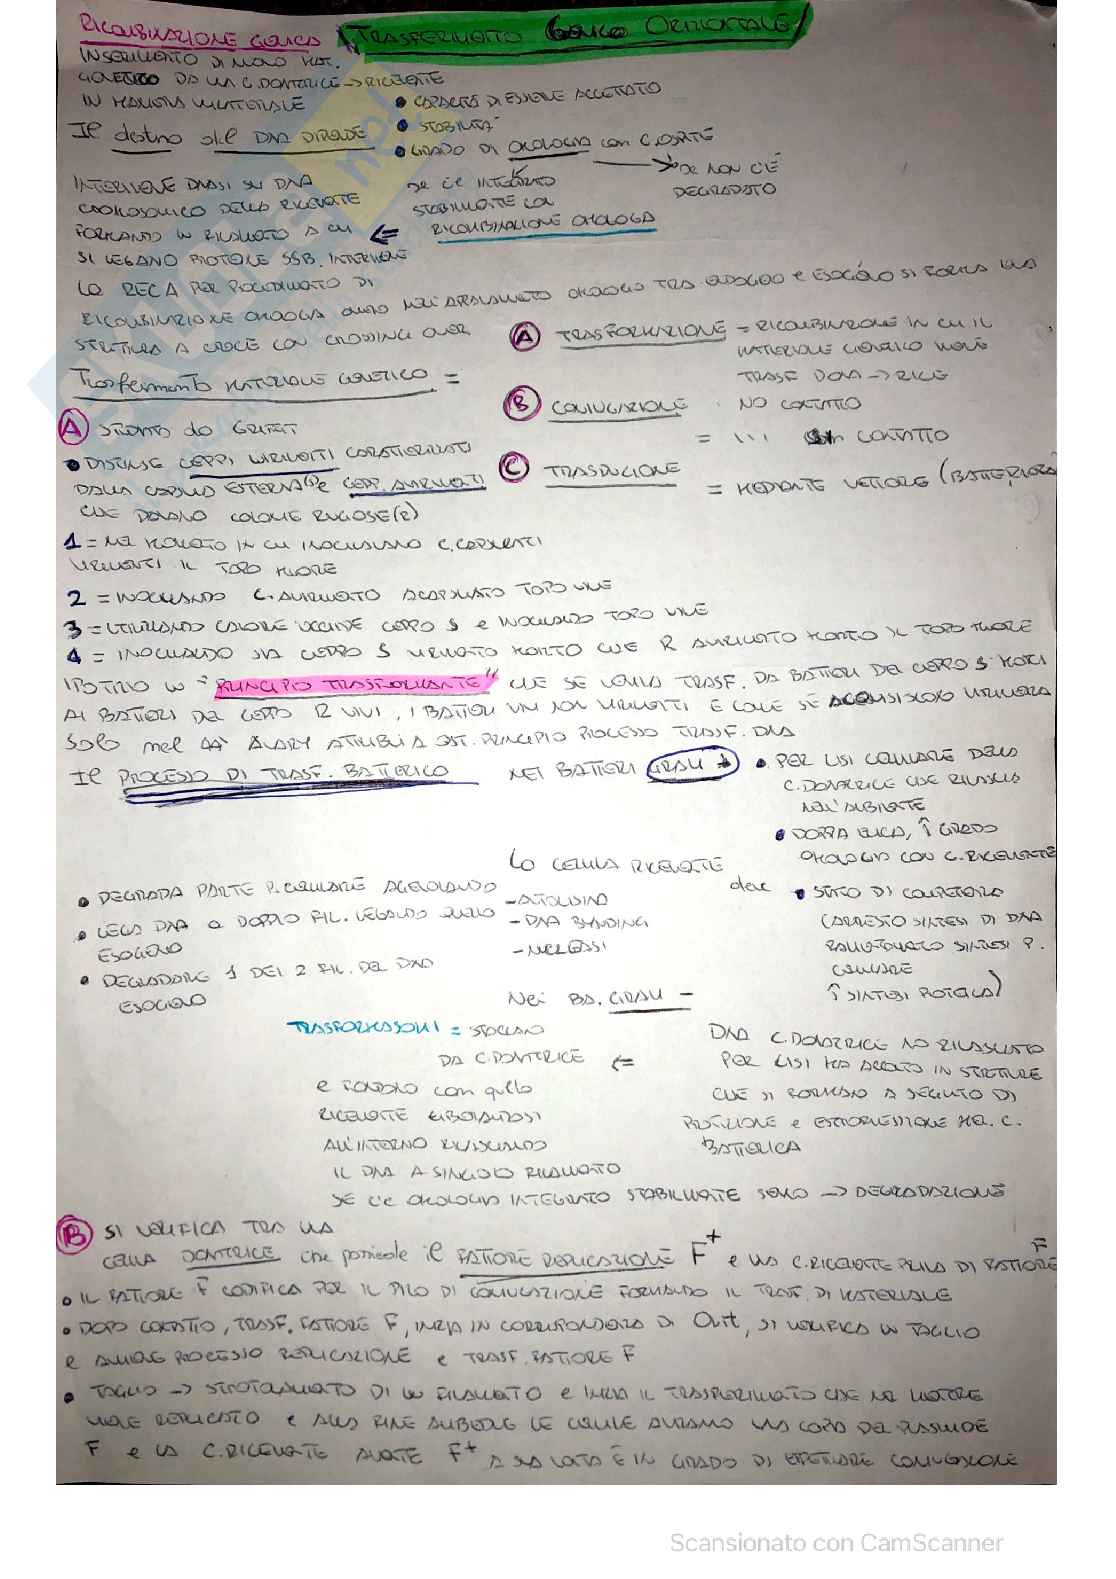 RICOMBINAZIONE GENICA (TRASFERIMENTO GENICO ORIZZONTALE)
INSERIMENTO DI NUOVO MAT.
GENETICO DA UNA C. DONATRICE -> RICEVENTE
IN MANIERA UNILATERALE
Il destino del DNA DIPENDE
• CAPACITÀ DI ESSERE ACCETTATO
• STABILITÀ
• GRADO DI OMOLOGIA con C. OSPITE
-> SE NON C'È
DEGRADATO
se c'è INTEGRATO
STABILMENTE CON
RICOMBINAZIONE OMOLOGA
INTERVIENE DNASI SU DNA
CROMOSOMICO DELLA RICEVENTE
FORMANDO UN FILAMENTO A CUI <=
SI LEGANO PROTEINE SSB. INTERVIENE
LA RECA PER PROCEDIMENTO DI
RICOMBINAZIONE OMOLOGA QUINDI NELL'APPAIAMENTO OMOLOGO TRA ENDOGENO e ESOGENO SI FORMA UNA
STRUTTURA A CROCE CON CROSSING OVER
Trasferimento MATERIALE GENETICO =
A TRASFORMAZIONE = RICOMBINAZIONE IN CUI IL
MATERIALE GENETICO VIENE
TRASF DONA -> RICE
NO CONTATTO
B CONIUGAZIONE
= \\\ con CONTATTO
C TRASDUZIONE
= MEDIANTE VETTORE (BATTERIOFAGO
A STUDIATO da GRIFFIT
• DISTINSE CEPPI VIRULENTI CARATTERIZZATI
DALLA CAPSULA ESTERNA(S) e CEPPI AVIRULENTI
CHE DAVANO COLONIE RUGOSE(R)
1 = NEL MOMENTO IN CUI INOCULIAMO C. CAPSULATI
VIRULENTI IL TOPO MUORE
2 = INOCULANDO C. AVIRULENTO ACAPSULATO TOPO VIVE
3 = UTILIZZANDO CALORE UCCIDE CEPPO S e INOCULANDO TOPO VIVE
4 = INOCULANDO SIA CEPPO S VIRULENTO MORTO CHE R AVIRULENTO MONTO IL TOPO MUORE
IPOTIZZÒ UN "PRINCIPIO TRASFORMANTE" CHE SE VENIVA TRASF. DA BATTERI DEL CEPPO S MORTI
AI BATTERI DEL CEPPO R VIVI, I BATTERI VIVI NON VIRULENTI È COME SE ACQUISISCONO VIRULENZA
Solo nel 44' AVARY ATTRIBUÌ A QST. PRINCIPIO PROCESSO TRASF. DNA
Il PROCESSO DI TRASF. BATTERICO NEI BATTERI GRAM +
• PER LISI CELLULARE DELLA
C. DONATRICE CHE RILASCIA
NELL'AMBIENTE
• DOPPIA ELICA, ↑ GRADO
OMOLOGIA CON C. RICEVENTE
La CELLULA RICEVENTE
deve • STATO DI COMPETENZA
(ARRESTO SINTESI DI DNA
RALLENTAMENTO SINTESI P.
CELLULARE
↑ SINTESI PROTEICA)
• DEGRADA PARTE P. CELLULARE AGENDO - AUTOLISINA
• LEGA DNA a DOPPIO FIL. LEGANDO QUELLO - DNA BINDING
ESOGENO - NUCLEASI
• DEGRADARE 1 DEI 2 FIL. DEL DNA
ESOGENO
Nei BA. GRAM -
DNA C. DONATRICE NO RILASCIATO
PER LISI MA ACCOLTO IN STRUTTURE
CHE SI FORMANO A SEGUITO DI
PROTEZIONE e ESTROFLESSIONE MEM. C.
BATTERICA
<=
TRASFORMASOMI = STACCANO
DA C. DONATRICE
e FONDONO con quella
RICEVENTE
ALL'INTERNO RILASCIANDO
IL DNA A SINGOLO FILAMENTO
SE C'è OMOLOGIA INTEGRATO STABILMENTE SENNO -> DEGRADAZIONE
B SI VERIFICA TRA UNA
CELLULA DONATRICE che possiede il FATTORE REPLICAZIONE F+ e UNA C. RICEVENTE PRIVA DI FATTORE F
• IL FATTORE F CODIFICA PER IL PILO DI CONIUGAZIONE FORMANDO IL TRASF. DI MATERIALE
• DOPO CONTATTO, TRASF. FATTORE F, INIZIA IN CORRISPONDENZA DI OriT, SI VERIFICA UN TAGLIO
e AVVIENE PROCESSO REPLICAZIONE e TRASF. FATTORE F
• TAGLIO -> SROTOLAMENTO DI UN FILAMENTO e INIZIA IL TRASFERIMENTO CHE NEL MENTRE
VIENE REPLICATO e ALLA FINE AMBEDUE LE CELLULE AVRANNO UNA COPIA DEL PLASMIDE
F e LA C. RICEVENTE AVENTE F+ A SUA VOLTA È IN GRADO DI EFFETTUARE CONIUGAZIONE
Scansionato con CamScanner